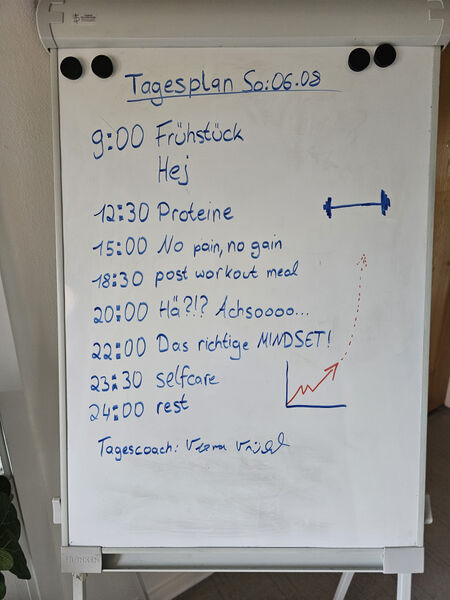 Tagesplan So:06.08
9:00 Frühstück
Hej
12:30 Proteine
15:00 No pain, no gain
18:30 post workout meal
20:00 Hä?!? Achsoooo...
22:00 Das richtige MINDSET!
23:30 selfcare
24:00 rest
Tagescoach: